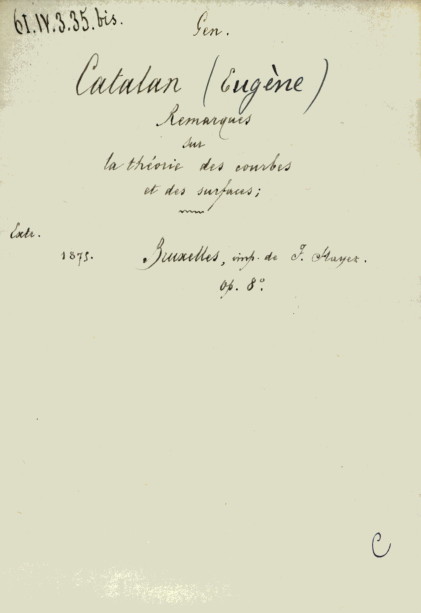 61.IV.3.35.bis.
Gen.
Catalan (Eugène)
Remarques
sur
la théorie des courbes
et des surfaces;
Extr.
1875. Bruxelles, imp. de F. Hayez.
Op. 8°.
C